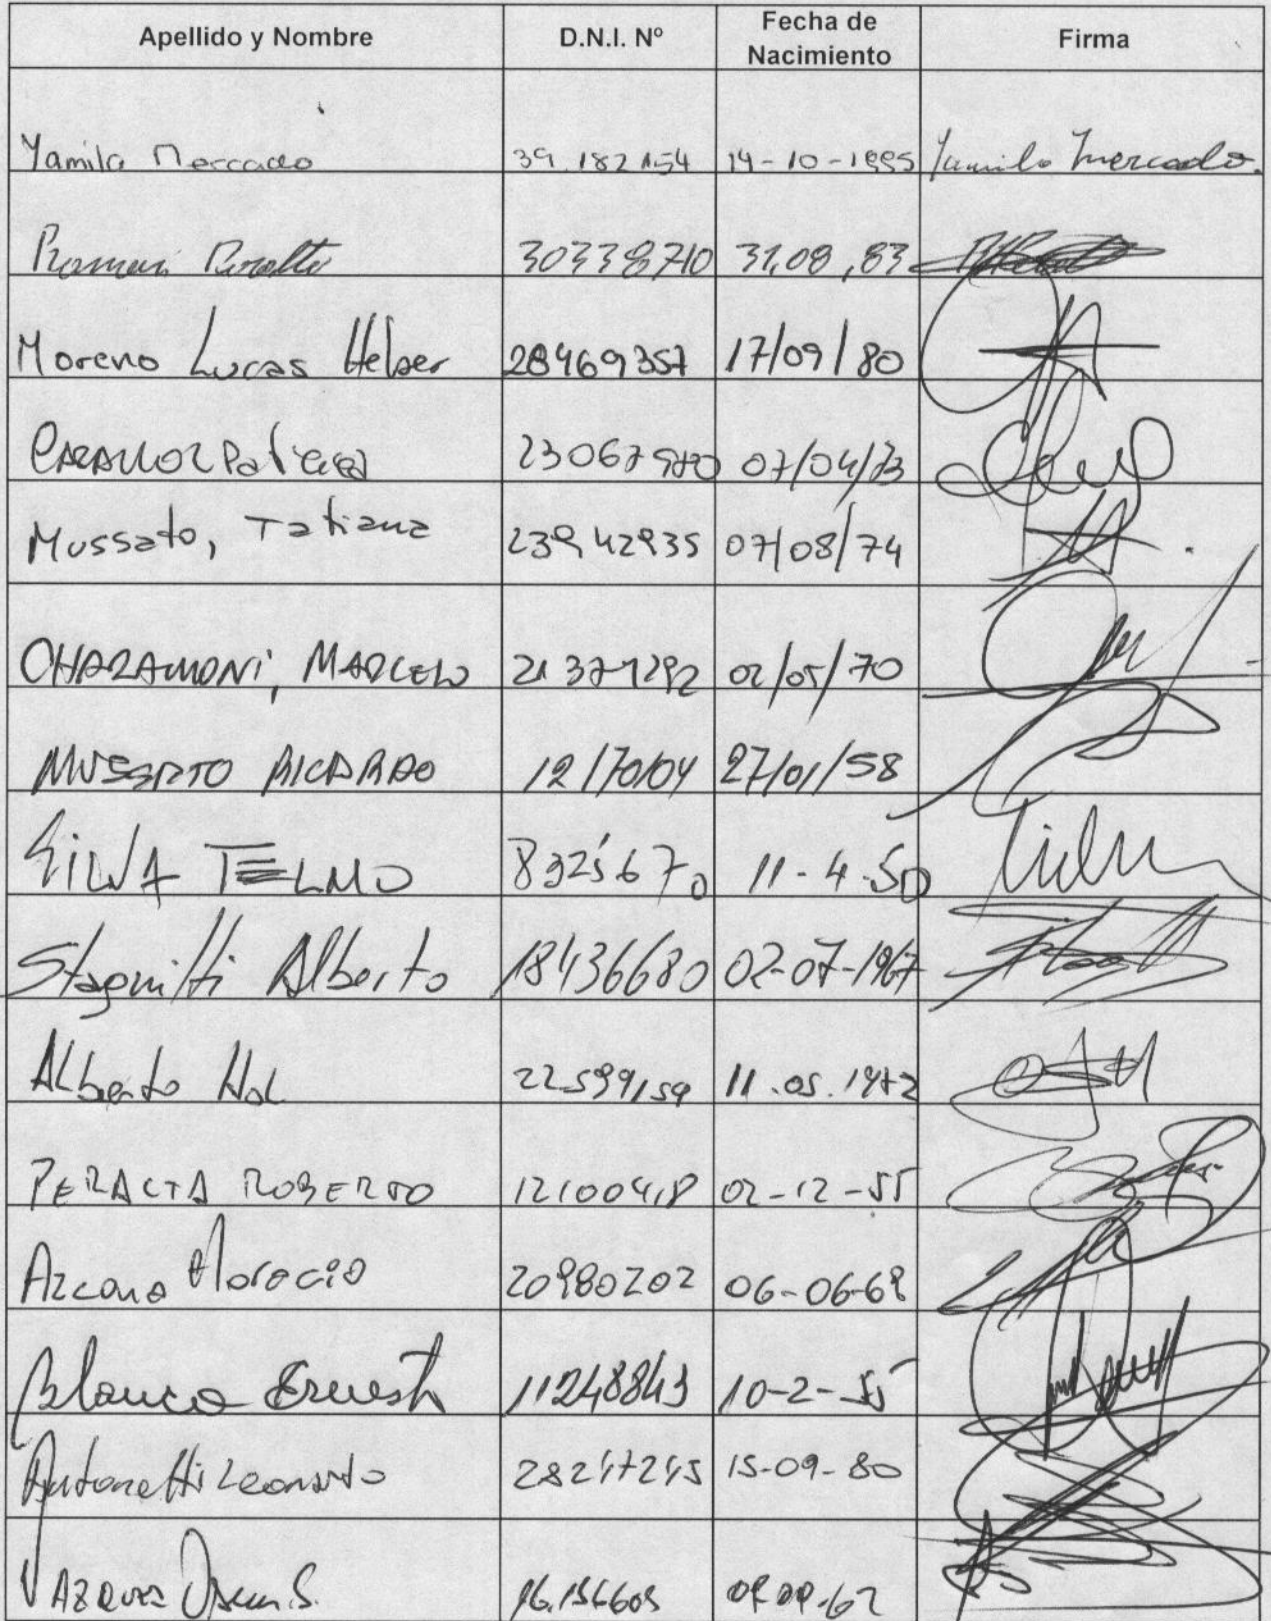 Apellido y Nombre D.N.I. Nº Fecha de Nacimiento Firma
Yamila Mercado 39.182.154 14-10-1995 Yamila Mercado.
30338710 31,08,83
Moreno Lucas Helber 28469357 17/09/80
07/04/73
Mussato, Tatiana 23942935 07/08/74
CHARAMONI, MARCELO 21371292 02/05/70
MUSSATO RICARDO 12170104 27/01/58
SILVA TELMO 8325670 11-4-50
Stagnitti Alberto 18436680 02-07-1967
Alberto 22599159 11.05.1972
PERALTA ROBERTO 12100418 02-12-55
Azcona Horacio 20980202 06-06-69
Blanco Ernesto 11248843 10-2-55
Antonetti Leonardo 28247245 15-09-80
VAZQUEZ Oscar S.